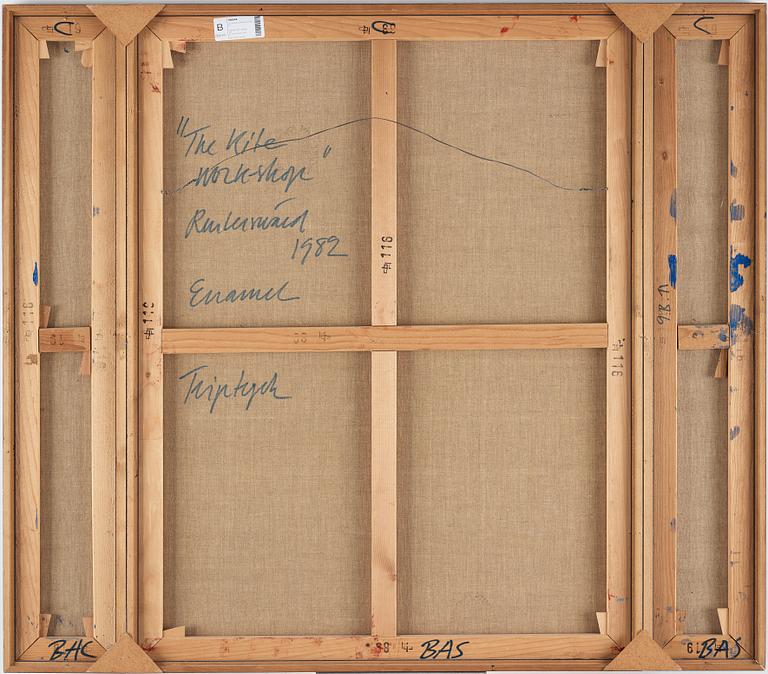 B
"The Kite
Work-shop"
Reuterswärd
1982
Enamel
Triptych
116
116
116
116
9.B.V
33
BAC
BAS
BAS